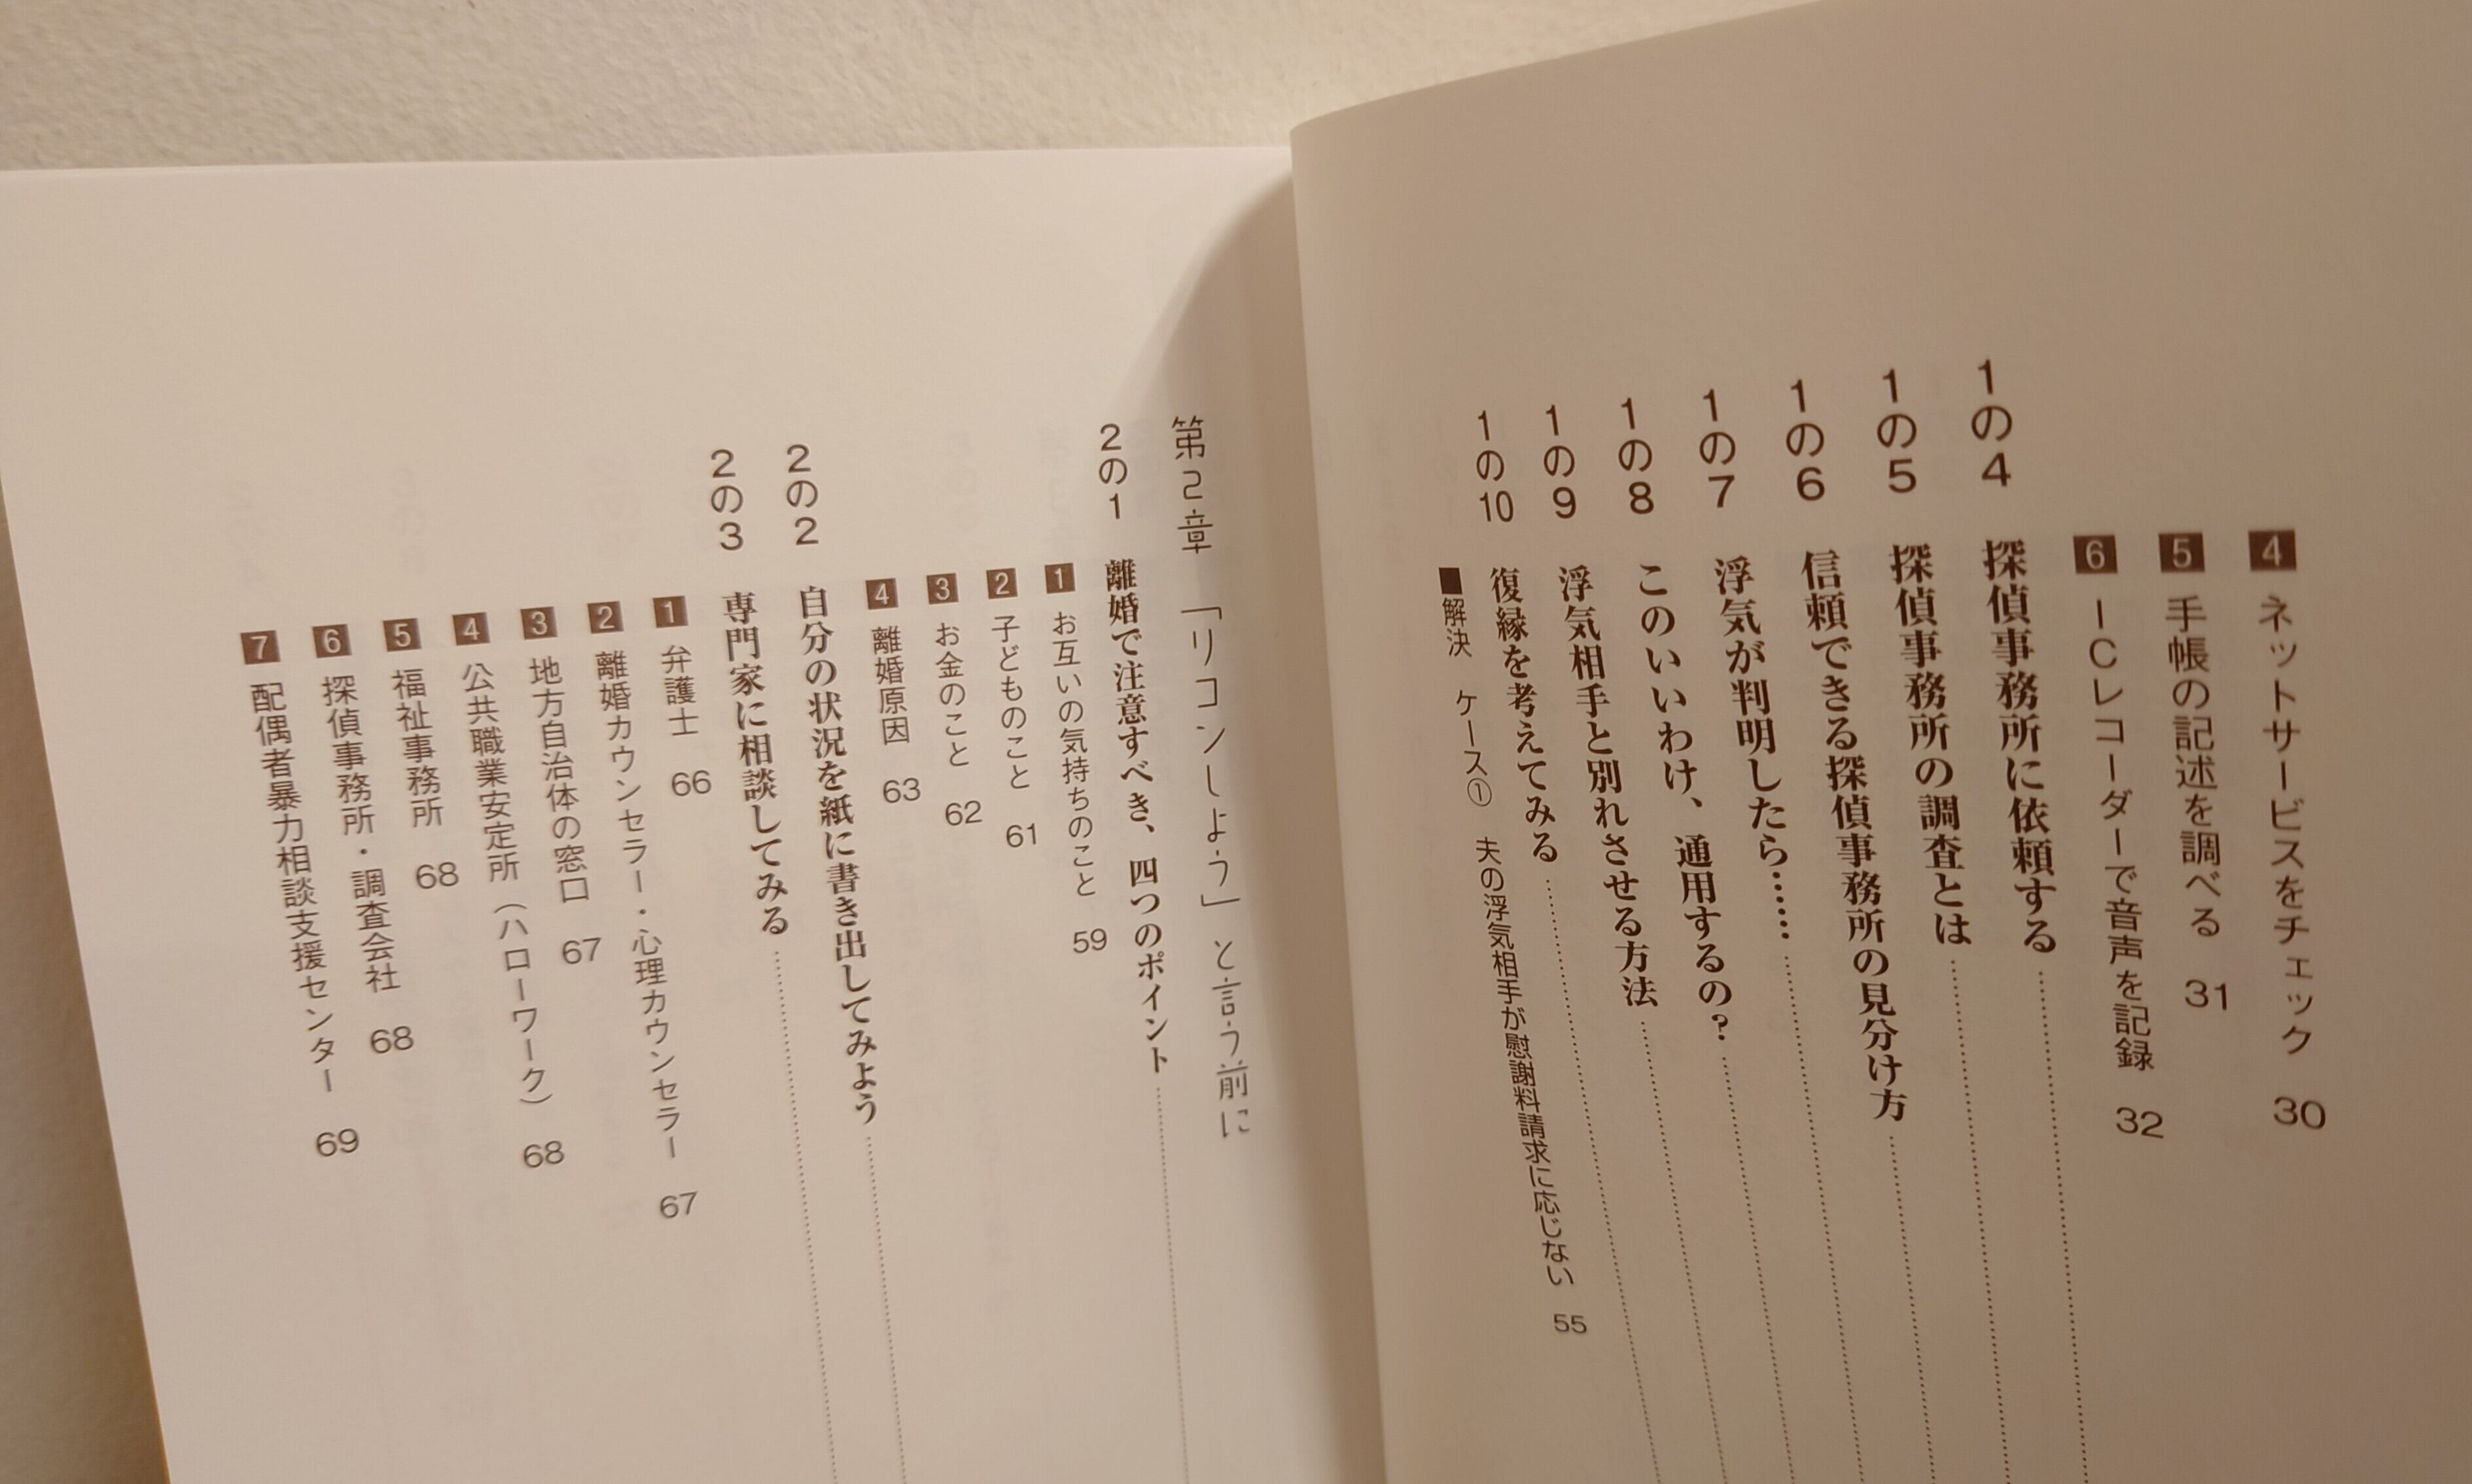 4 ネットサービスをチェック 30
5 手帳の記述を調べる 31
6 ICレコーダーで音声を記録 32
1の4 探偵事務所に依頼する
1の5 探偵事務所の調査とは
1の6 信頼できる探偵事務所の見分け方
1の7 浮気が判明したら……
1の8 このいいわけ、通用するの?
1の9 浮気相手と別れさせる方法
1の10 復縁を考えてみる
■解決 ケース① 夫の浮気相手が慰謝料請求に応じない 55
第2章 「リコンしよう」と言う前に
2の1 離婚で注意すべき、四つのポイント
1 お互いの気持ちのこと 59
2 子どものこと 61
3 お金のこと 62
4 離婚原因 63
2の2 自分の状況を紙に書き出してみよう
2の3 専門家に相談してみる
1 弁護士 66
2 離婚カウンセラー・心理カウンセラー 67
3 地方自治体の窓口 67
4 公共職業安定所(ハローワーク) 68
5 福祉事務所 68
6 探偵事務所・調査会社 68
7 配偶者暴力相談支援センター 69